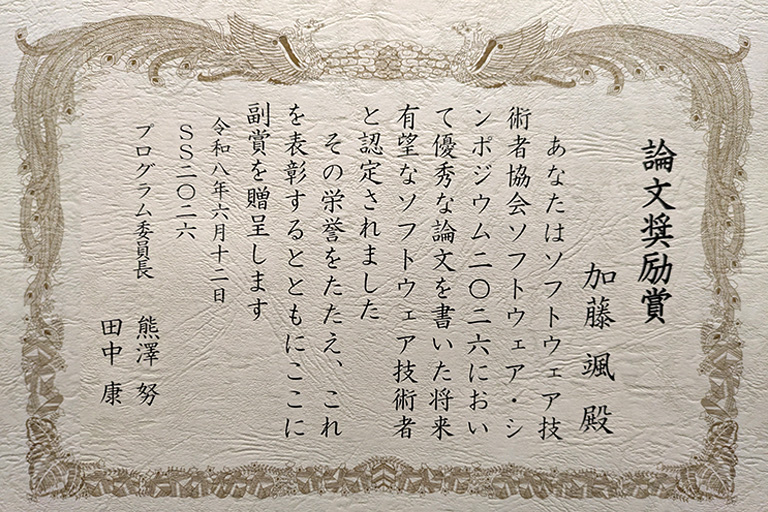 論文奨励賞
加藤 颯 殿
あなたはソフトウェア技
術者協会ソフトウェア・シ
ンポジウム二〇二六におい
て優秀な論文を書いた将来
有望なソフトウェア技術者
と認定されました
その栄誉をたたえ、これ
を表彰するとともにここに
副賞を贈呈します
令和八年六月十二日
ＳＳ二〇二六
プログラム委員長 熊澤 努
田中 康